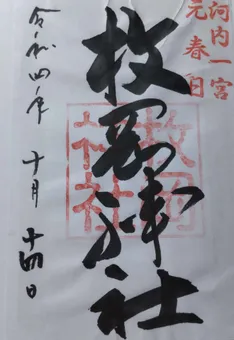 河内一宮
元春日
枚岡神社
枚岡
神社
令和四年 十月 十四日